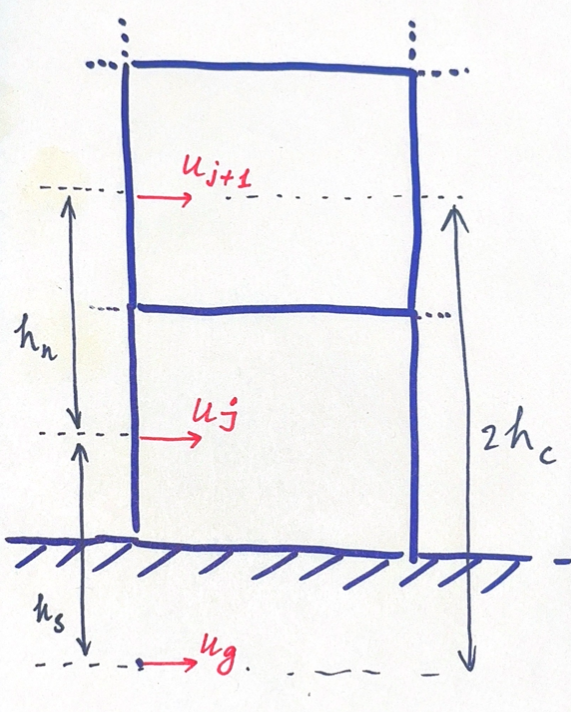 u_{j+1}
h_n
u_j
2h_c
h_s
u_g